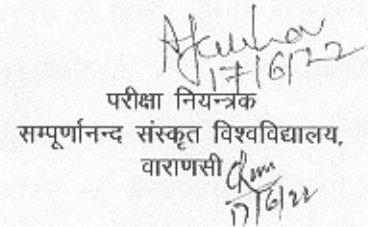 17/6/22
परीक्षा नियन्त्रक
सम्पूर्णानन्द संस्कृत विश्वविद्यालय,
वाराणसी
17/6/22